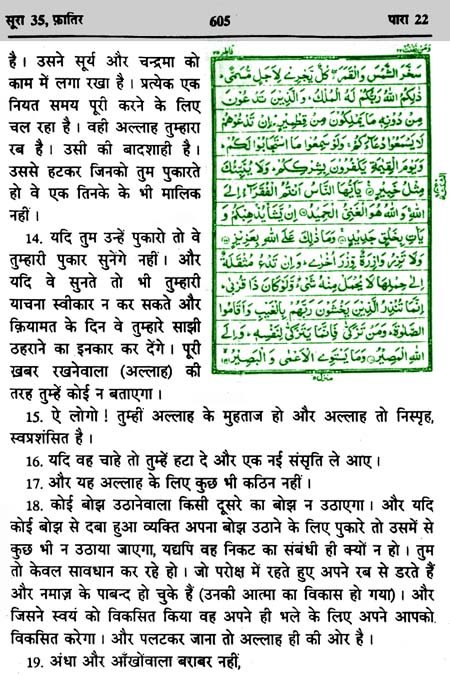 सूरा 35, फ़ातिर
605
पारा 22
है। उसने सूर्य और चन्द्रमा को
काम में लगा रखा है। प्रत्येक एक
नियत समय पूरी करने के लिए
चल रहा है। वही अल्लाह तुम्हारा
रब है। उसी की बादशाही है।
उससे हटकर जिनको तुम पुकारते
हो वे एक तिनके के भी मालिक
नहीं।
14. यदि तुम उन्हें पुकारो तो वे
तुम्हारी पुकार सुनेगे नहीं। और
यदि वे सुनते तो भी तुम्हारी
याचना स्वीकार न कर सकते और
क़ियामत के दिन वे तुम्हारे साझी
ठहराने का इनकार कर देंगे। पूरी
ख़बर रखनेवाला (अल्लाह) की
तरह तुम्हें कोई न बताएगा।
سَخَّرَ الشَّمْسَ وَالْقَمَرَ كُلٌّ يَّجْرِي لِأَجَلٍ مُّسَمًّى
ذَٰلِكُمُ اللهُ رَبُّكُمْ لَهُ الْمُلْكُ وَالَّذِينَ تَدْعُونَ
مِن دُونِهِ مَا يَمْلِكُونَ مِن قِطْمِيرٍ إِن تَدْعُوهُمْ
لَا يَسْمَعُوا دُعَاءَكُمْ وَلَوْ سَمِعُوا مَا اسْتَجَابُوا لَكُمْ
وَيَوْمَ الْقِيٰمَةِ يَكْفُرُونَ بِشِرْكِكُمْ وَلَا يُنَبِّئُكَ
مِثْلُ خَبِيرٍ يٰأَيُّهَا النَّاسُ أَنتُمُ الْفُقَرَاءُ إِلَى
اللهِ وَاللهُ هُوَ الْغَنِيُّ الْحَمِيدُ إِن يَّشَأْ يُذْهِبْكُمْ وَ
يَأْتِ بِخَلْقٍ جَدِيدٍ وَمَا ذَٰلِكَ عَلَى اللهِ بِعَزِيزٍ
وَلَا تَزِرُ وَازِرَةٌ وِّزْرَ أُخْرَىٰ وَإِن تَدْعُ مُثْقَلَةٌ
إِلَىٰ حِمْلِهَا لَا يُحْمَلْ مِنْهُ شَيْءٌ وَّلَوْ كَانَ ذَا قُرْبَىٰ
إِنَّمَا تُنذِرُ الَّذِينَ يَخْشَوْنَ رَبَّهُم بِالْغَيْبِ وَأَقَامُوا
الصَّلٰوةَ وَمَن تَزَكَّىٰ فَإِنَّمَا يَتَزَكَّىٰ لِنَفْسِهِ وَإِلَى
اللهِ الْمَصِيرُ وَمَا يَسْتَوِي الْأَعْمَىٰ وَالْبَصِيرُ
15. ऐ लोगो! तुम्हीं अल्लाह के मुहताज हो और अल्लाह तो निस्पृह,
स्वप्रशंसित है।
16. यदि वह चाहे तो तुम्हें हटा दे और एक नई संसृति ले आए।
17. और यह अल्लाह के लिए कुछ भी कठिन नहीं।
18. कोई बोझ उठानेवाला किसी दूसरे का बोझ न उठाएगा। और यदि
कोई बोझ से दबा हुआ व्यक्ति अपना बोझ उठाने के लिए पुकारे तो उसमें से
कुछ भी न उठाया जाएगा, यद्यपि वह निकट का संबंधी ही क्यों न हो। तुम
तो केवल सावधान कर रहे हो। जो परोक्ष में रहते हुए अपने रब से डरते हैं
और नमाज़ के पाबन्द हो चुके हैं (उनकी आत्मा का विकास हो गया)। और
जिसने स्वयं को विकसित किया वह अपने ही भले के लिए अपने आपको
विकसित करेगा। और पलटकर जाना तो अल्लाह ही की ओर है।
19. अंधा और आँखोंवाला बराबर नहीं,